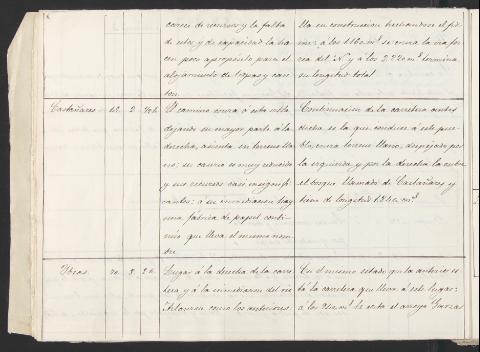 carece de recursos y la falta
de estos, y de capacidad la ha
cen poco aproposito para el
alojamiento de tropas y can
ton.
lla en construccion hechandose el fir
me; á los 1160 m.s se cruza la via fer
rea del N. y á los 2220 m.s termina
su longitud total
Castañares
El camino cruza á esta villa
dejando su mayor parte á la
derecha, asienta en terreno lla
no; su caserio es muy reducido
y sus recursos casi insignifi
cantes: á su inmediacion hay
una fábrica de papel conti-
nuo que lleva el mismo nom
bre
Continuacion de la carretera antes
dicha, es la que conduce á este pue
blo, cruza terreno llano, despejado por
la izquierda y por la derecha la cubre
el bosque llamado de Castañares y
tiene de longitud m.s
Ybeas
Lugar á la derecha de la carre
tera y á la inmediacion del rio
Arlanzon como los anteriores
En el mismo estado que la anterior es
tá la carretera que lleva á este lugar:
á los m.s le corta el arroyo